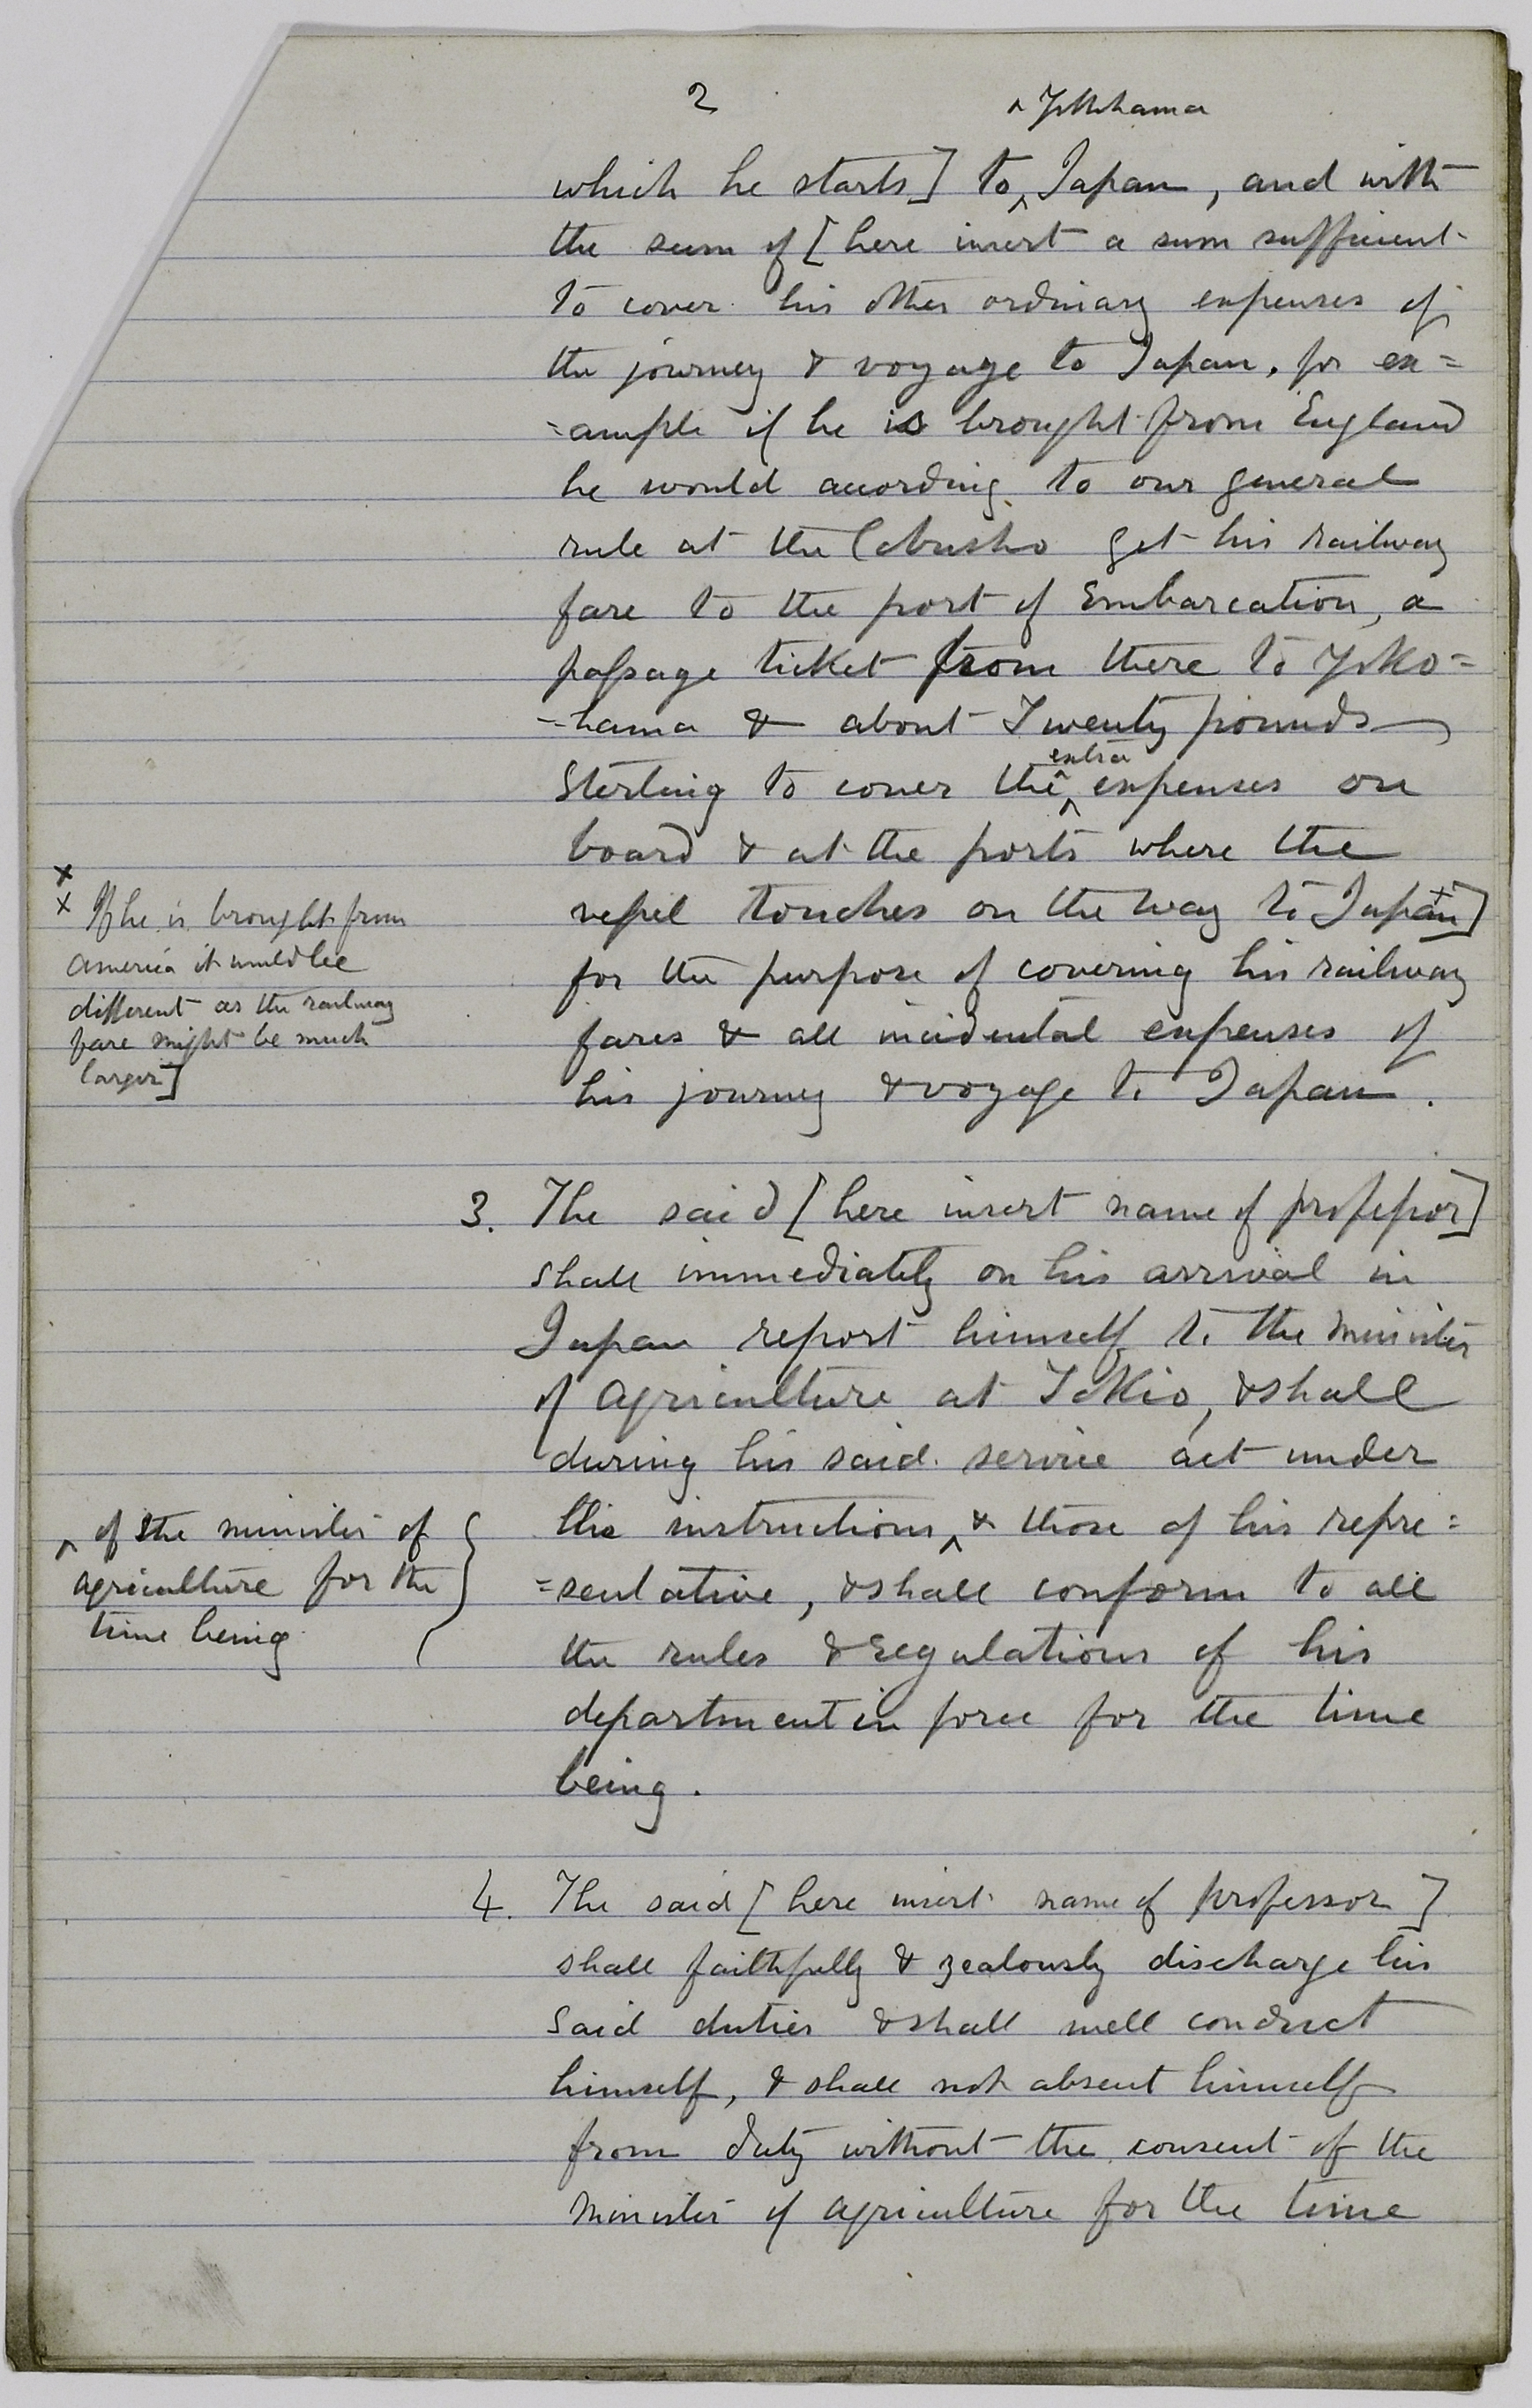 2
^ Yokohama
which he starts] to ^ Japan, and with
the sum of [here insert a sum sufficient
to cover his other ordinary expenses of
the journey & voyage to Japan, for ex=
=ample if he is brought from England
he would acording to our general
rule at the Cobusho get his railway
fare to the port of Embarcation, a
passage ticket from there to Yoko=
=hama & about Twenty pounds
extra
Sterling to cover the ^ expenses on
board & at the ports where the
vessel touches on the way to Japan] x
for the purpose of covering his railway
fares & all incidental expenses of
his journey & voyage to Japan.
x
x If he is brought from
America it would be
different as the railway
fare might be much
larger]
3. The said [here insert name of professor]
shall immediately on his arrival in
Japan report himself to the minister
of agriculture at Tokio, & shall
during his said service act under
the instructions ^ & those of his repre=
=sentative, & shall conform to all
the rules & regulations of his
department in force for the time
being.
^ of the minister of
agriculture for the
time being
4. The said [here insert name of professor]
shall faithfully & zealously discharge his
said duties & shall well conduct
himself, & shall not absent himself
from duty without the consent of the
minister of agriculture for the time